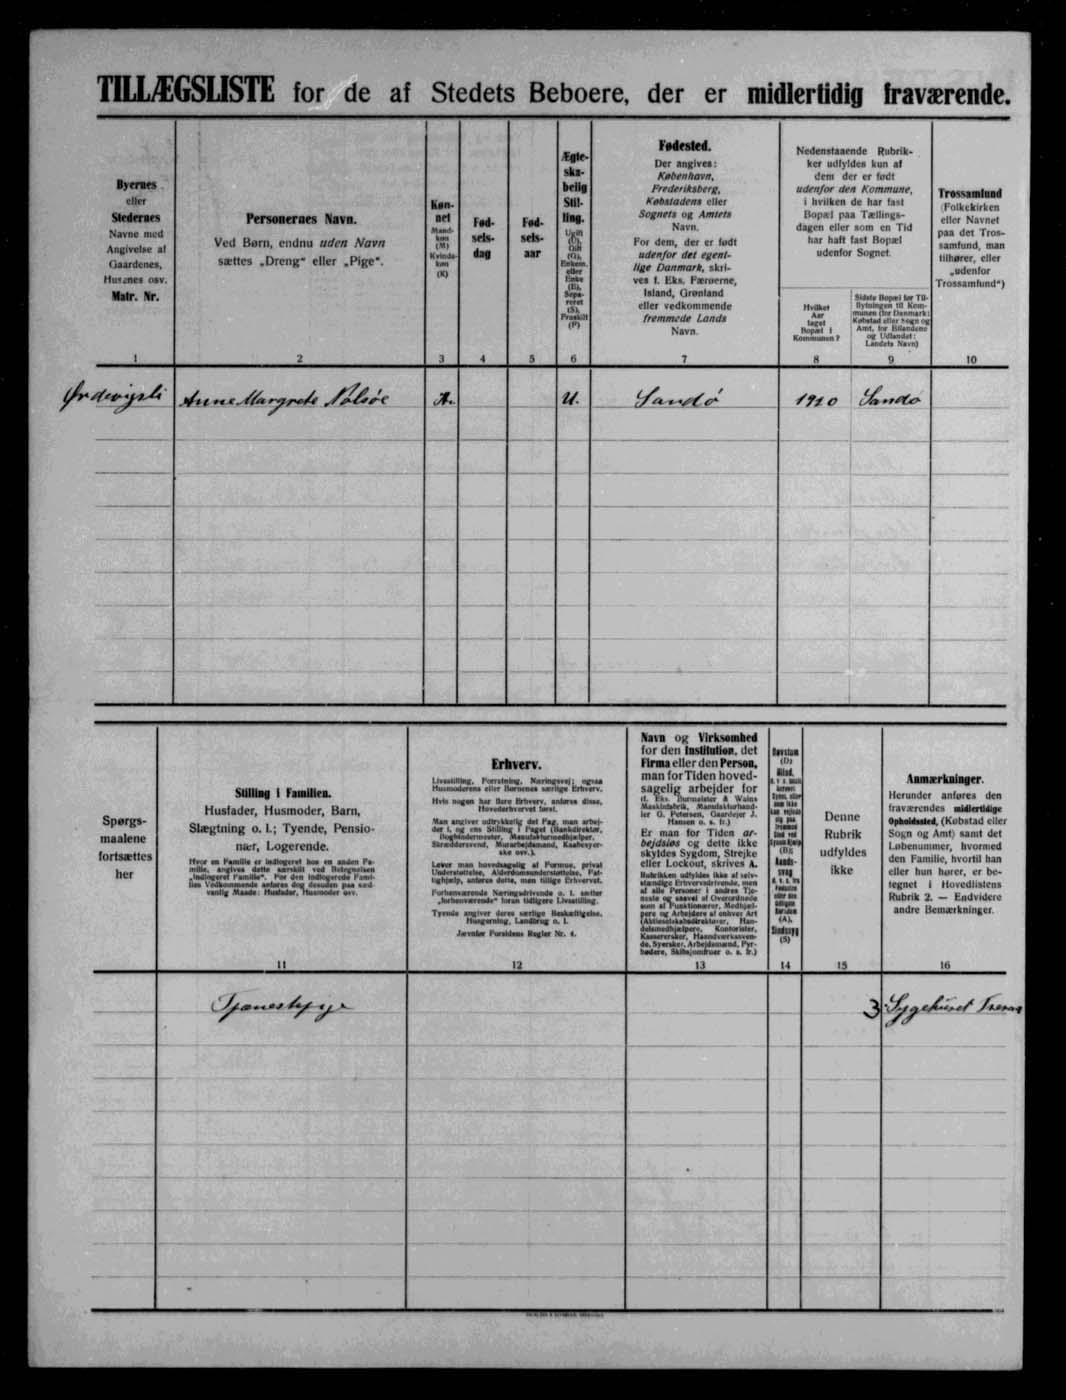 TILLÆGSLISTE for de af Stedets Beboere, der er midlertidig fraværende.
Byernes
eller
Stedernes
Navne med
Angivelse af
Gaardenes,
Husenes osv.
Matr. Nr.
1
Personernes Navn.
Ved Børn, endnu uden Navn
sættes „Dreng“ eller „Pige“.
2
Køn-
net
Mand-
køn
(M)
Kvinde-
køn
(K)
3
Fød-
sels-
dag
4
Fød-
sels-
aar
5
Ægte-
ska-
belig
Stil-
ling.
Ugift
(U),
Gift
(G),
Enkem.
eller
Enke
(E),
Sepa-
reret
(S),
Fraskilt
(F)
6
Fødested.
Der angives:
København,
Frederiksberg,
Købstadens eller
Sognets og Amtets
Navn.
For dem, der er født
udenfor det egent-
lige Danmark, skri-
ves f. Eks. Færøerne,
Island, Grønland
eller vedkommende
fremmede Lands
Navn.
7
Nedenstaaende Rubrik-
ker udfyldes kun af
dem der er født
udenfor den Kommune,
i hvilken de har fast
Bopæl paa Tællings-
dagen eller som en Tid
har haft fast Bopæl
udenfor Sognet.
Hvilket
Aar
taget
Bopæl i
Kommunen?
8
Sidste Bopæl før Til-
flytningen til Kom-
munen (for Danmark:
Købstad eller Sogn og
Amt, for Bilandene
og Udlandet:
Landets Navn)
9
Trossamfund
(Folkekirken
eller Navnet
paa det Tros-
samfund, man
tilhører, eller
„udenfor
Trossamfund“)
10
Anne Margrete Nolsøe K. U. Sandø 1920 Sandø
Spørgs-
maalene
fortsættes
her
Stilling i Familien.
Husfader, Husmoder, Barn,
Slægtning o. l.; Tyende, Pensio-
nær, Logerende.
Hvor en Familie er indlogeret hos en anden Fa-
milie, angives dette særskilt ved Betegnelsen
„indlogeret Familie“. For den indlogerede Fami-
lies Vedkommende anføres dog desuden paa sæd-
vanlig Maade: Husfader, Husmoder osv.
11
Erhverv.
Livsstilling, Forretning, Næringsvej; ogsaa
Husmoderens eller Børnenes særlige Erhverv.
Hvis nogen har flere Erhverv, anføres disse,
Hovederhvervet først.
Man angiver udtrykkelig det Fag, man arbej-
der i, og ens Stilling i Faget (Bankdirektør,
Bogbindermester, Manufakturmedhjælper,
Skræddersvend, Murarbejdsmand, Kaabesyer-
ske osv.).
Lever man hovedsagelig af Formue, privat
Understøttelse, Alderdomsunderstøttelse, Fat-
tighjælp, anføres dette, men tillige Erhvervet.
Forhenværende Næringsdrivende o. l. sætter
„forhenværende“ foran tidligere Livsstilling.
Tyende angiver deres særlige Beskæftigelse,
Husgerning, Landbrug o. l.
Jævnfør Forsidens Regler Nr. 4.
12
Navn og Virksomhed
for den Institution, det
Firma eller den Person,
man for Tiden hoved-
sagelig arbejder for
(f. Eks. Burmeister & Wains
Maskinfabrik, Manufakturhand-
ler G. Petersen, Gaardejer J.
Hansen o. s. fr.)
Er man for Tiden ar-
bejdsløs og dette ikke
skyldes Sygdom, Strejke
eller Lockout, skrives A.
Rubrikken udfyldes ikke af selv-
stændige Erhvervsdrivende, men
af alle Personer i andres Tje-
neste og saavel af Overordnede
som af Funktionærer, Medhjæl-
pere og Arbejdere af enhver Art
(Aktieselskabsdirektører, Han-
delsmedhjælpere, Kontorister,
Kasserersker, Haandværkssven-
de, Syersker, Arbejdsmænd, Fyr-
bødere, Skibsjomfruer o. s. fr.)
13
Døvstum
(D)
Blind,
(B);
Aands-
svag
(A),
Sindssyg
(S)
14
Denne
Rubrik
udfyldes
ikke
15
Anmærkninger.
Herunder anføres den
fraværendes midlertidige
Opholdssted, (Købstad eller
Sogn og Amt) samt det
Løbenummer, hvormed
den Familie, hvortil han
eller hun hører, er be-
tegnet i Hovedlistens
Rubrik 2. — Endvidere
andre Bemærkninger.
16
Tjenestepige 3 Sygehuset